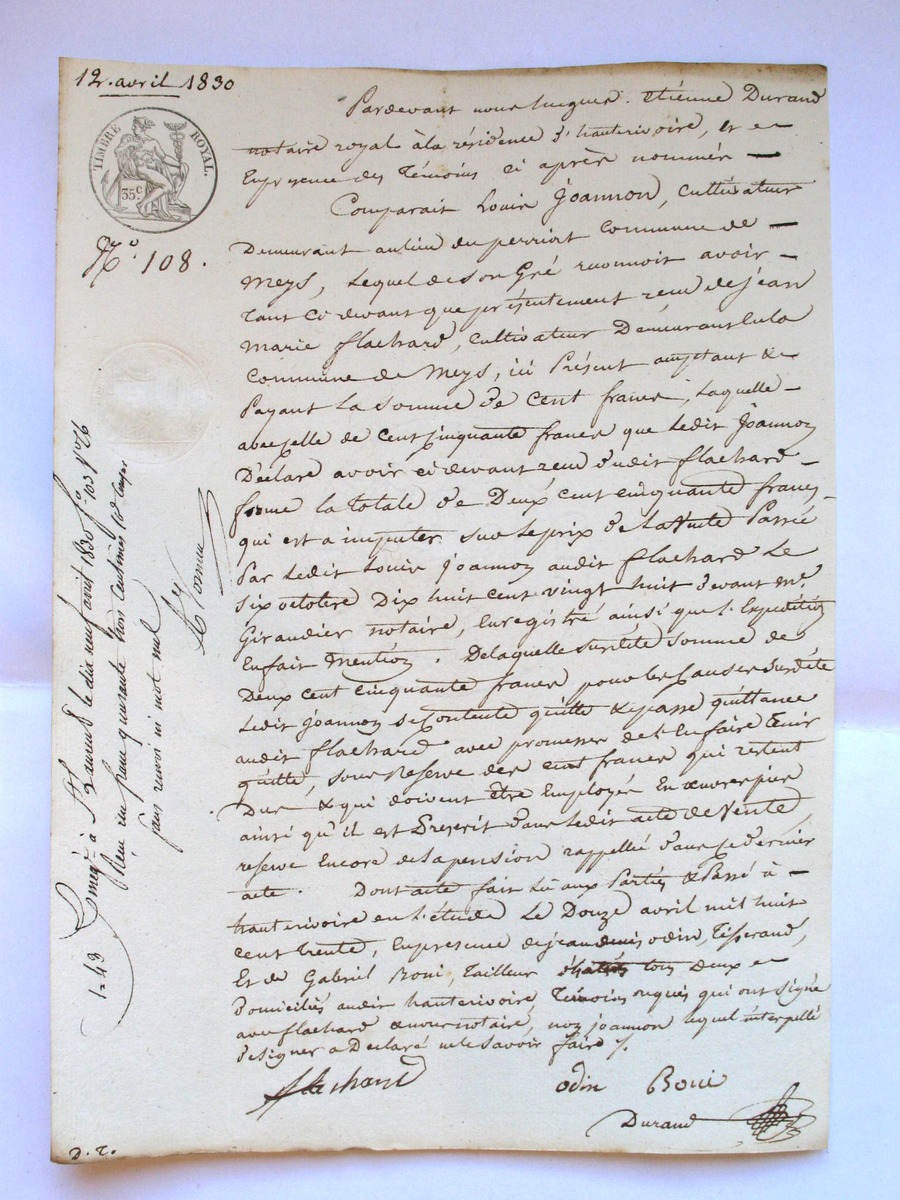 12. avril 1830
TIMBRE ROYAL.
35.c
N.o 108.
Pardevant nous Etienne Durand
notaire royal à la résidence d'hauterivoire, et en
présence des Témoins ci après nommés —
Comparait Louis Joannon, cultivateur
Demeurant au lieu du commune de —
Meys, lequel de son Gré reconnoit avoir —
tant ci devant que présentement reçu de Jean
Marie flachard, cultivateur Demeurant en la
Commune de Meys, ici Présent acceptant &
Payant La Somme de Cent francs, Laquelle —
avec celle de Cent cinquante francs que ledit Joannon
Déclare avoir ci devant reçu dudit flachard —
forme la totale de Deux cent cinquante francs
qui est a imputer sur le prix de la Vente Passée
Par Ledit Louis Joannon audit flachard Le
six octobre Dix huit cent vingt huit devant Me.
Giraudier notaire, Enregistré ainsi que l'Expédition
En fait Mention. De laquelle susdite Somme de
Deux cent cinquante francs pour les Causes susdite
Ledit Joannon se Contente quitte & passe quittance
audit flachard avec promesse de l'En faire tenir
quitte, sous Reserve des cent francs qui restent
Dus & qui doivent être Employés En œuvres pies
ainsi qu'il est Prescrit dans ledit acte de Vente
reserve Encore de la pension rappellée dans ce dernier
acte. Dont acte fait Lu aux Parties & Passé à —
hauterivoire en l'étude Le Douze avril mil huit
cent trente, En presence de jean denis odin, Tisserand,
Et de Gabriel Boui, Tailleur tous Deux
Domiciliés audit hauterivoire, Témoins requis qui ont signé
avec flachard & nous notaire, non joannon lequel interpellé
de signer a Déclaré ne le savoir faire /.
flachard
odin Boui
Durand
Enreg.é à St Laurent le dix neuf avril 1830 f.o 103
Reçu un franc quarante trois Centimes
sans renvoi ni mot nul
1-43
D. T.